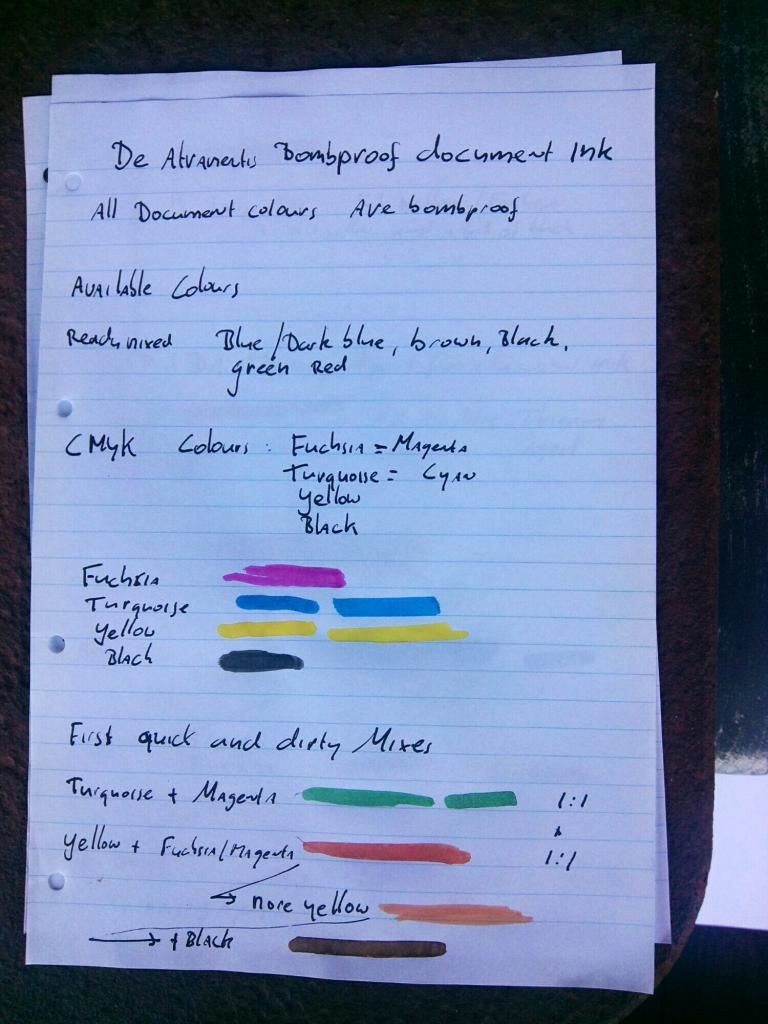 De Atramentis Bombproof document Ink
All Document colours Are bombproof
Available Colours
Ready mixed Blue/Dark blue, brown, Black,
green Red
CMYK Colours : Fuchsia = Magenta
Turquoise = Cyan
Yellow
Black
Fuchsia
Turquoise
Yellow
Black
First quick and dirty Mixes
Turquoise + Magenta 1:1
Yellow + Fuchsia/Magenta 1:1
→ more yellow
→ + Black